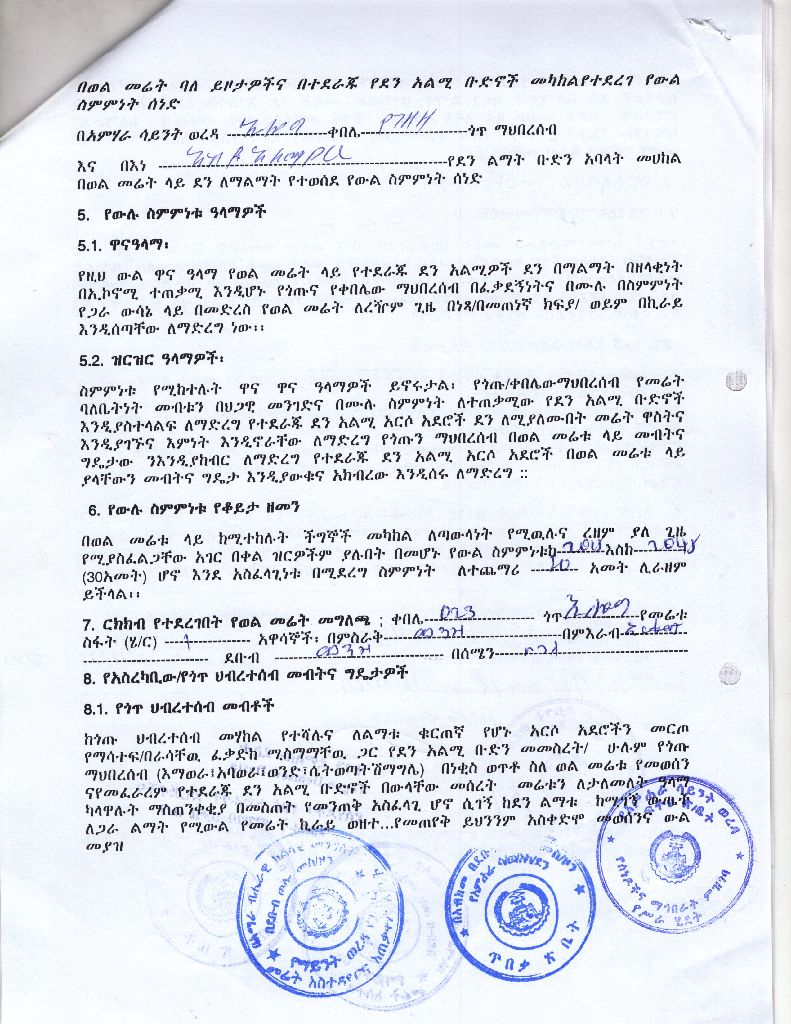 በወል መሬት ባለ ይዞታዎችና በተደራጁ የደን አልሚ ቡድኖች መካከልየተደረገ የውል
ስምምነት ሰነድ
በአምሃራ ሳይንት ወረዳ ቀበሌ ጎጥ ማህበረሰብ
እና በእነ የደን ልማት ቡድን አባላት መሀከል
በወል መሬት ላይ ደን ለማልማት የተወሰደ የውል ስምምነት ሰነድ
5. የውሉ ስምምነቱ ዓላማዎች
5.1. ዋናዓላማ፡
የዚህ ውል ዋና ዓላማ የወል መሬት ላይ የተደራጁ ደን አልሚዎች ደን በማልማት በዘላቂነት
በኢኮኖሚ ተጠቃሚ እንዲሆኑ የጎጡና የቀበሌው ማህበረሰብ በፈቃደኝነትና በሙሉ በስምምነት
የጋራ ውሳኔ ላይ በመድረስ የወል መሬት ለረዥም ጊዜ በነጻ/በመጠነኛ ክፍያ/ ወይም በኪራይ
እንዲሰጣቸው ለማድረግ ነው፡፡
5.2. ዝርዝር ዓላማዎች፡
ስምምነቱ የሚከተሉት ዋና ዋና ዓላማዎች ይኖሩታል፡ የጎጡ/ቀበሌውማህበረሰብ የመሬት
ባለቤትነት መብቱን በህጋዊ መንገድና በሙሉ ስምምነት ለተጠቃሚው የደን አልሚ ቡድኖች
እንዲያስተላልፍ ለማድረግ የተደራጁ ደን አልሚ አርሶ አደሮች ደን ለሚያለሙበት መሬት ዋስትና
እንዲያገኙና እምነት እንዲኖራቸው ለማድረግ የጎጡን ማህበረሰብ በወል መሬቱ ላይ መብትና
ግዴታው ንእንዲያከብር ለማድረግ የተደራጁ ደን አልሚ አርሶ አደሮች በወል መሬቱ ላይ
ያላቸውን መብትና ግዴታ እንዲያውቁና አክብረው እንዲሰሩ ለማድረግ ::
6. የውሉ ስምምነቱ የቆይታ ዘመን
በወል መሬቱ ላይ ከሚተከሉት ችግኞች መካከል ለጣውላነት የሚዉሉና ረዘም ያለ ጊዜ
የሚያስፈልጋቸው አገር በቀል ዝርዎችም ያሉበት በመሆኑ የውል ስምምነቱከ እስከ
(30አመት) ሆኖ እንደ አስፈላጊነቱ በሚደረግ ስምምነት ለተጨማሪ አመት ሊራዘም
ይችላል፡፡
7. ርክክብ የተደረገበት የወል መሬት መግለጫ ; ቀበሌ ጎጥ የመሬቱ
ስፋት (ሄ/ር) 1 አዋሳኞች፡ በምስራቅ ወንዝ በምእራብ
ደቡብ ወንዝ በሰሜን
8. የአስረካቢው/የጎጥ ህብረተሰብ መብትና ግዴታዎች
8.1. የጎጥ ህብረተሰብ መብቶች
ከጎጡ ህብረተሰብ መሃከል የተሻሉና ለልማቱ ቁርጠኛ የሆኑ አርሶ አደሮችን መርጦ
የማሳተፍ/በራሳቸዉ ፈቃድከ ሚስማማቸዉ ጋር የደን አልሚ ቡድን መመስረት/ ሁሉም የጎጡ
ማህበረሰብ (እማወራ፣አባወራ፣ወንድ፣ሴትወጣትሽማግሌ) በነቂስ ወጥቶ ስለ ወል መሬቱ የመወሰን
ናየመፈራረም የተደራጁ ደን አልሚ ቡድኖች በውላቸው መሰረት መሬቱን ለታለመለት ዓላማ
ካላዋሉት ማስጠንቀቂያ በመስጠት የመንጠቅ አስፈላጊ ሆኖ ሲገኝ ከደን ልማቱ ከሚገኝ ውጤት
ለጋራ ልማት የሚውል የመሬት ኪራይ ወዘተ...የመጠየቅ ይህንንም አስቀድሞ መወሰንና ውል
መያዝ